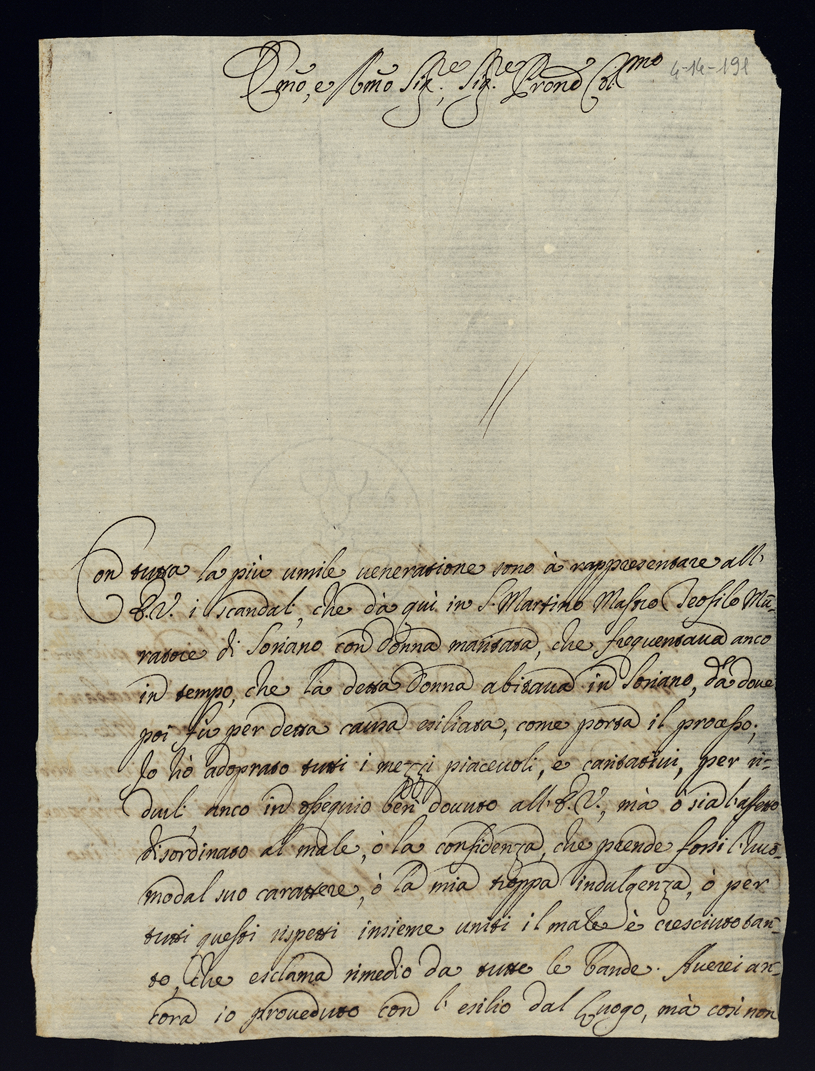 Em̃o, e Rm̃o Sig.re, Sig.re Prone Col.mo
4-14-191
Con tutta la più umile ueneratione sono à rappresentare all'
E.V. i scandal', che dà quì in S. Martino Teofilo Mu-
ratore di Soriano con donna maritata, che frequentaua anco
in tempo, che la detta donna abitaua in Soriano, da doue
poi fù per detta causa esiliata, come porta il processo;
Io hò adoprato tutti i mezzi piaceuoli, e caritatiui, per ri-
durl' anco in ossequio ben douuto all'E.V., mà ò sia l'affetto
disordinato al male, ò la confidenza, che prende forsi l'huo-
mo dal suo carattere, ò la mia troppa indulgenza, ò per
tutti questi rispetti insieme uniti il male è cresciuto tan-
to, che esclama rimedio da tutte le bande. Auerei an-
cora io proueduto con l'esilio dal Luogo, mà così non